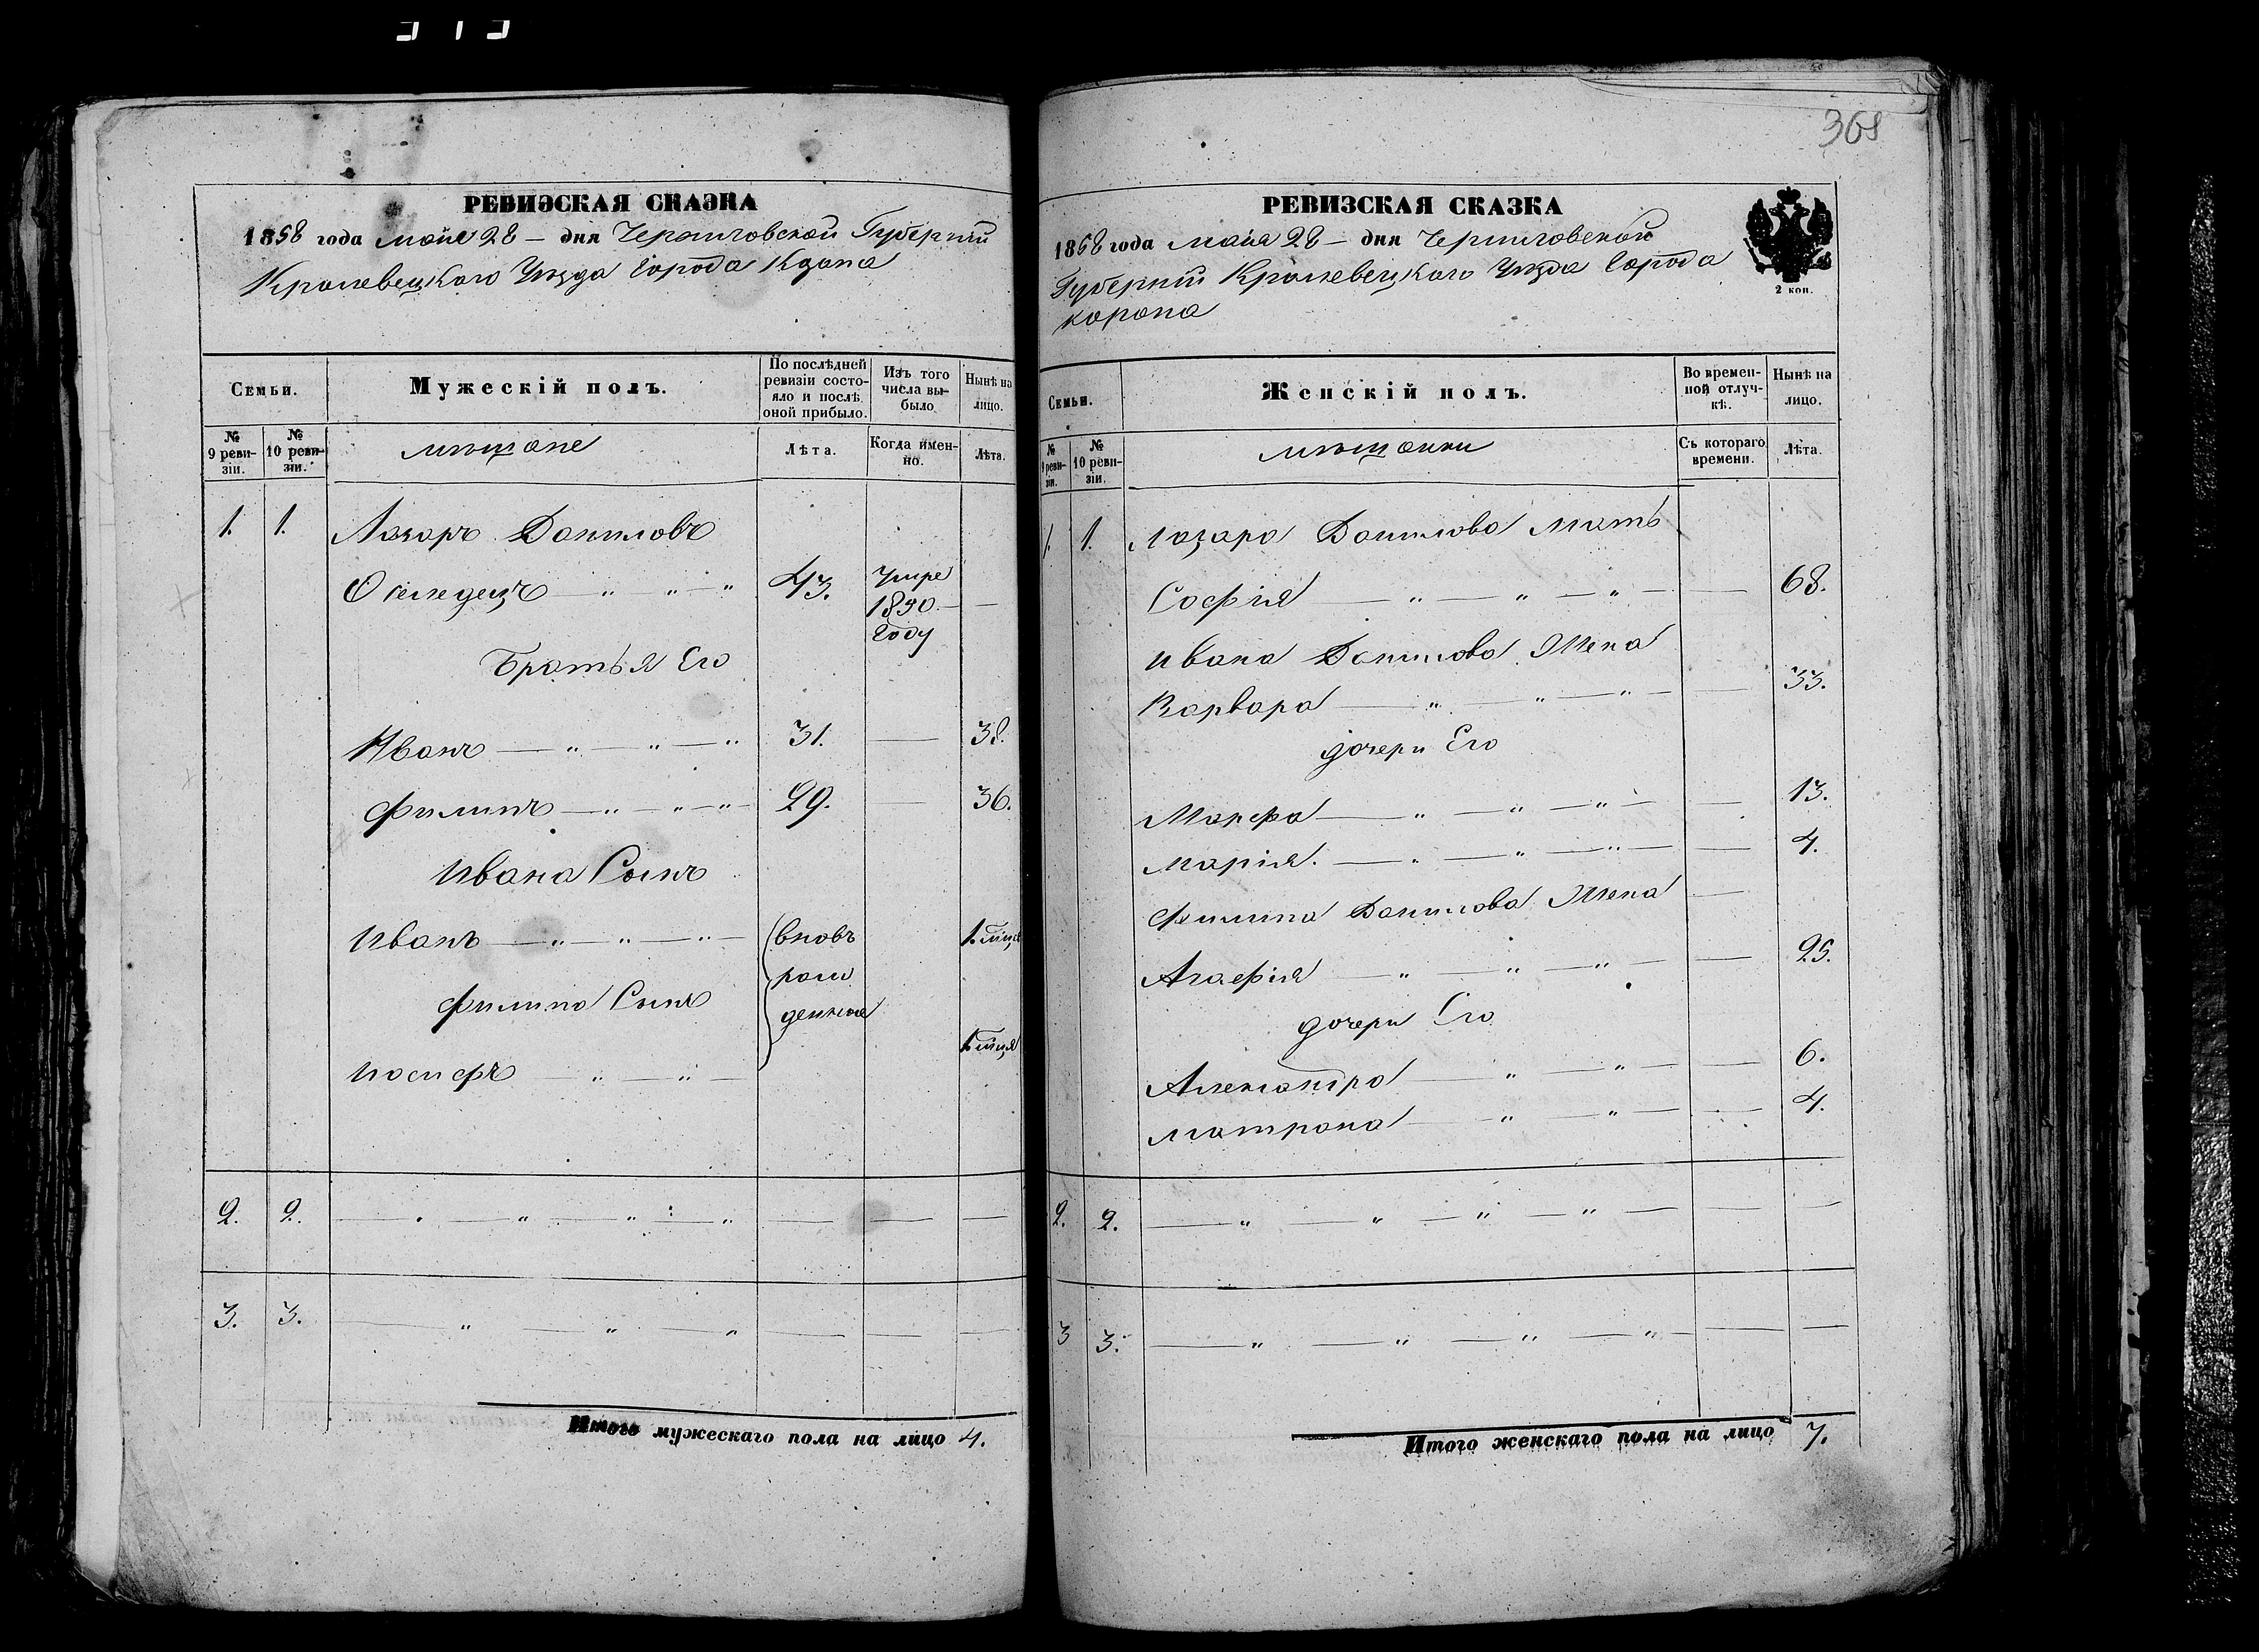 368
РЕВИЗСКАЯ СКАЗКА
1858 года мая 28 — дня Черниговской Губерніи
Кролевецкого Уѣзда Города
Семьи.
Мужескій полъ.
По послѣдней ревизіи состояло и послѣ оной прибыло.
Изъ того числа выбыло.
Нынѣ на лицо.
№ 9 ревизіи.
№ 10 ревизіи.
мѣщане
Лѣта.
Когда именно.
Лѣта.
1. 1. Лазарь Даниловъ
Оселедецъ — „ „ — „ 43. Умре —
1850
году
Братья Его
Иванъ — „ — „ — „ 31. — 38.
Филипъ — „ — „ — „ — 29. — 36.
Ивана Сынъ
Иванъ — „ — „ — „ — вновь 1.
рож
Филипа Сынъ
денные
1.
Иосифъ — „ — „ —
2. 2. — „ — „ — „ — „ — — —
3. 3. — „ — „ — „ — — —
Итого мужескаго пола на лицо 4.
РЕВИЗСКАЯ СКАЗКА
1858 года мая 28 — дня Черниговской
Губерніи Кролевецкого Уѣзда Города
Коропа
2 коп.
Семьи.
Женскій полъ.
Во временной отлучкѣ.
Нынѣ на лицо.
№ 9 ревизіи.
№ 10 ревизіи.
мѣщанки
Съ котораго времени.
Лѣта.
1. 1. Лазаря Данилова Мать
Софія — „ — „ — „ — — 68.
Ивана Данилова Жена
Варвара — „ — „ — „ — — 33.
дочери Его
Марфа — „ — „ — — 13.
Марія. — „ — „ — „ — — 4.
Филипа Данилова Жена —
Агафія — „ — „ — „ — — 25.
дочери Его
Александра — „ — „ — — 6.
Матрона — „ — „ — — 4.
2. 2. — „ — „ — „ — „ — — —
3 3. — „ — „ — „ — „ — — —
Итого женскаго пола на лицо 7.